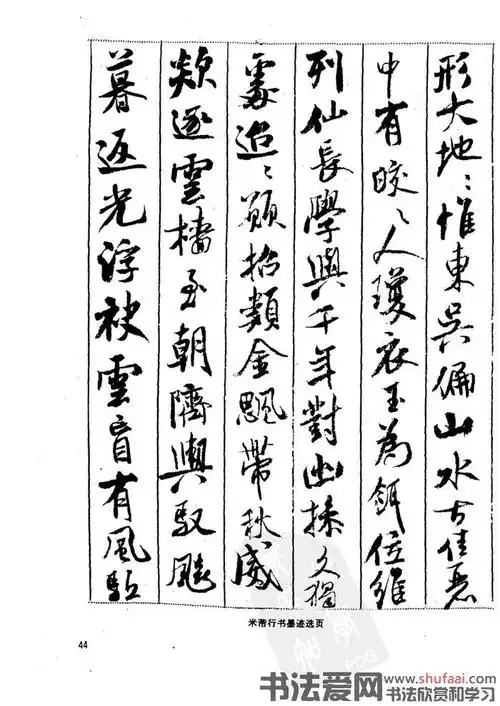 形大地〻惟東吳偏山水古佳麗
中有皎〻人瓊衣玉為餌位維
列仙長學與千年對幽操久獨
處迢〻願招類金颸帶秋威
欻逐雲檣至朝隮輿馭飈
暮返光浮袂雲盲有風駈
米芾行书墨迹选页
44
书法爱网 www.shufaai.com
书法欣赏和学习
PDG